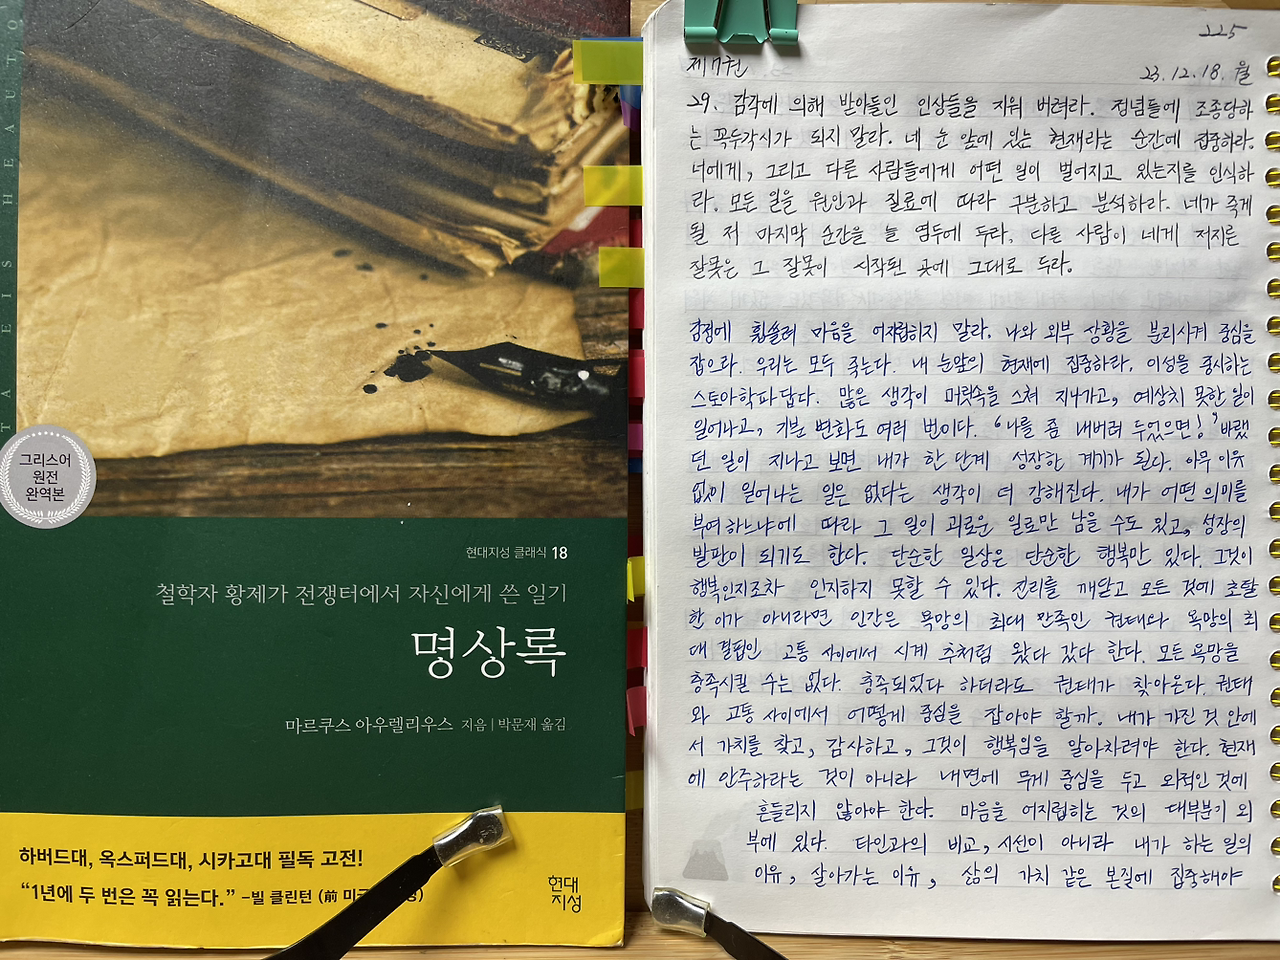 T A E I S H E A U T O
그리스어
원전
완역본
현대지성 클래식 18
철학자 황제가 전쟁터에서 자신에게 쓴 일기
명상록
마르쿠스 아우렐리우스 지음 | 박문재 옮김
하버드대, 옥스퍼드대, 시카고대 필독 고전!
“1년에 두 번은 꼭 읽는다.” –빌 클린턴 (前 미국
현대
지성
225
제7권
23.12.18. 월
29. 감각에 의해 받아들인 인상들을 지워 버려라. 정념들에 조종당하
는 꼭두각시가 되지 말라. 네 눈 앞에 있는 현재라는 순간에 집중하라.
너에게, 그리고 다른 사람들에게 어떤 일이 벌어지고 있는지를 인식하
라. 모든 일을 원인과 질료에 따라 구분하고 분석하라. 네가 죽게
될 저 마지막 순간을 늘 염두에 두라. 다른 사람이 네게 저지른
잘못은 그 잘못이 시작된 곳에 그대로 두라.
감정에 휩쓸려 마음을 어지럽히지 말라. 나와 외부 상황을 분리시켜 중심을
잡으라. 우리는 모두 죽는다. 내 눈앞의 현재에 집중하라. 이성을 중시하는
스토아학파답다. 많은 생각이 머릿속을 스쳐 지나가고, 예상치 못한 일이
일어나고, 기분 변화도 여러 번이다. '나를 좀 내버려 두었으면!' 바랬
던 일이 지나고 보면 내가 한 단계 성장한 계기가 된다. 아무 이유
없이 일어나는 일은 없다는 생각이 더 강해진다. 내가 어떤 의미를
부여하느냐에 따라 그 일이 괴로운 일로만 남을 수도 있고, 성장의
발판이 되기도 한다. 단순한 일상은 단순한 행복만 있다. 그것이
행복인지조차 인지하지 못할 수 있다. 진리를 깨닫고 모든 것에 초탈
한 이가 아니라면 인간은 욕망의 최대 만족인 권태와 욕망의 최
대 결핍인 고통 사이에서 시계 추처럼 왔다 갔다 한다. 모든 욕망을
충족시킬 수는 없다. 충족되었다 하더라도 권태가 찾아온다. 권태
와 고통 사이에서 어떻게 중심을 잡아야 할까. 내가 가진 것 안에
서 가치를 찾고, 감사하고, 그것이 행복임을 알아차려야 한다. 현재
에 안주하라는 것이 아니라 내면에 무게 중심을 두고 외적인 것에
흔들리지 않아야 한다. 마음을 어지럽히는 것의 대부분이 외
부에 있다. 타인과의 비교, 시선이 아니라 내가 하는 일의
이유, 살아가는 이유, 삶의 가치 같은 본질에 집중해야